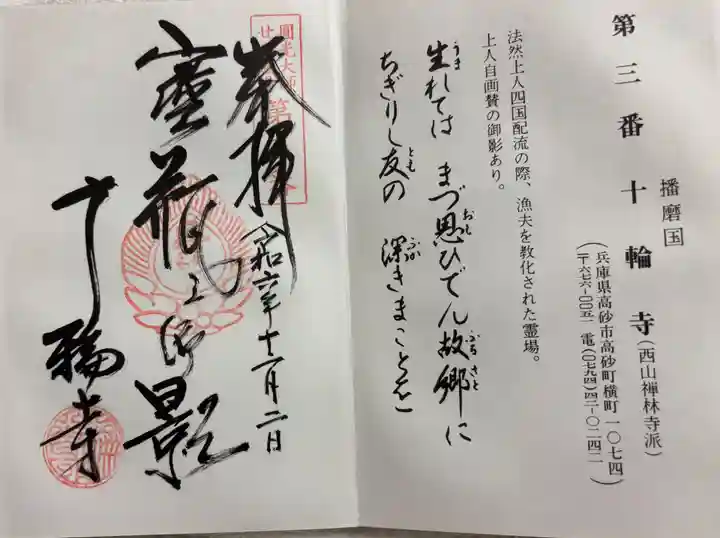 第三番十輪寺(西山禅林寺派)
播磨国
(兵庫県高砂市高砂町横町一〇七四
〒六七六-〇〇五一 電(〇七九四)四二-〇二四二)
法然上人四国配流の際、漁夫を教化された霊場。
上人自画賛の御影あり。
生れては まづ思ひでん故郷に
うま おもい ふるさと
ちぎりし友の 深きまことを
とも ふか
圓光大師
廿
第
奉拝
令和六年十二月二日
宝瓶の御影
十輪寺